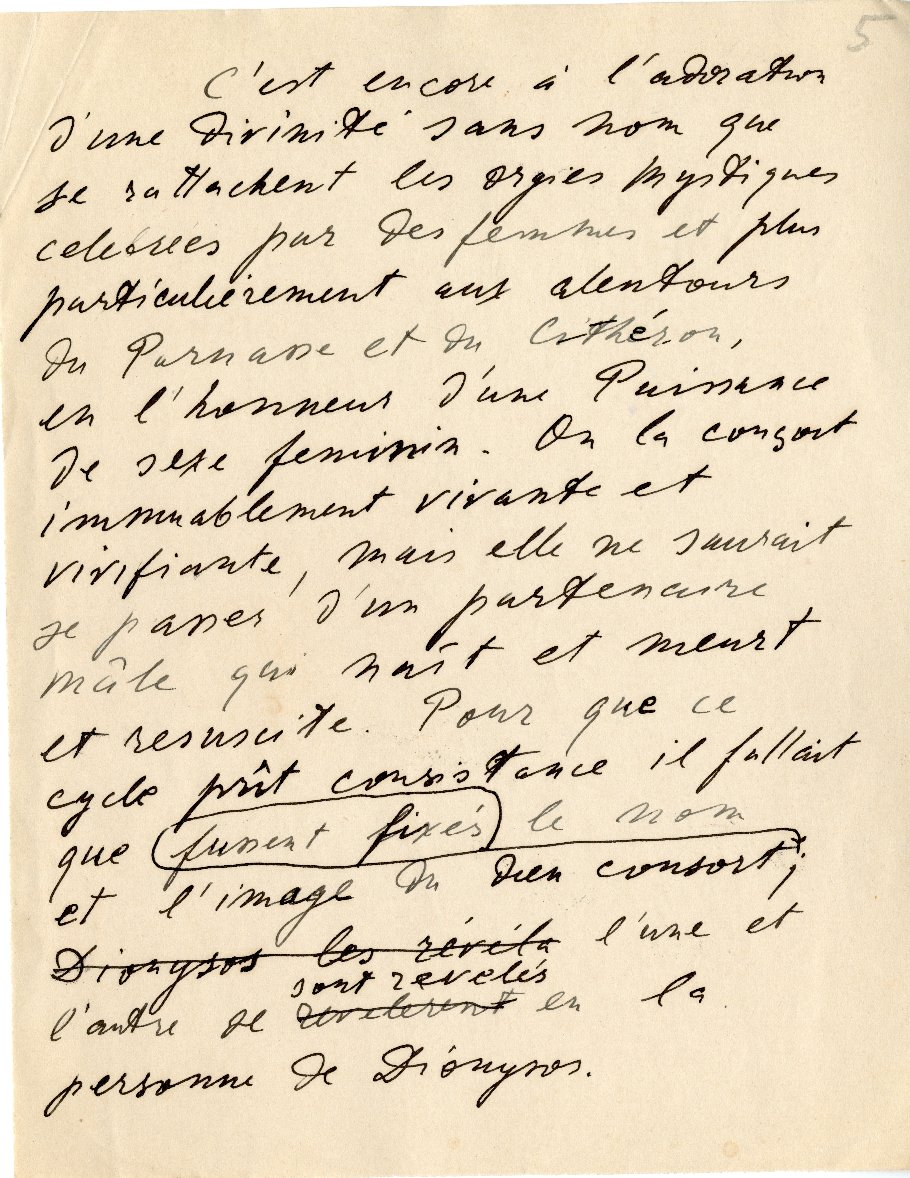 5
C'est encore à l'adoration
d'une divinité sans nom que
se rattachent les orgies mystiques
celebrées par des femmes et plus
particulièrement aux alentours
du Parnasse et du Cithéron,
en l'honneur d'une Puissance
de sexe feminin. On la conçoit
immuablement vivante et
vivifiante, mais elle ne saurait
se passer d'un partenaire
mâle qui naît et meurt
et resuscite. Pour que ce
cycle prît consistance il fallait
que fussent fixés le nom
et l'image du dieu consort;
Dionysos les révéla l'une et
sont revelés
l'autre se revelerent en la
personne de Dionysos.